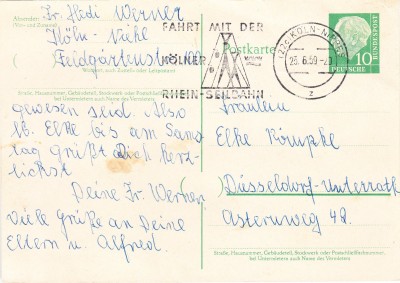 Absender: Fr. Hedi Werner
Köln-Niehl
Feldgärtenstr. 100
Straße, Hausnummer, Gebäudeteil, Stockwerk oder Postschließfachnummer,
bei Untermietern auch Name des Vermieters
gewesen sind. Also
lb. Elke bis am Sams
tag grüßt Dich herz-
lichst
Deine Fr. Werner
Viele Grüße an Deine
Eltern u. Alfred.
FAHRT MIT DER
KÖLNER
RHEIN-SEILBAHN
Postkarte
(22c) KÖLN-NIPPES
10
DEUTSCHE
BUNDESPOST
Fräulein
Elke
Düsseldorf-Unterrath
Asternweg 42.
Straße, Hausnummer, Gebäudeteil, Stockwerk oder Postschließfachnummer,
bei Untermietern auch Name des Vermieters